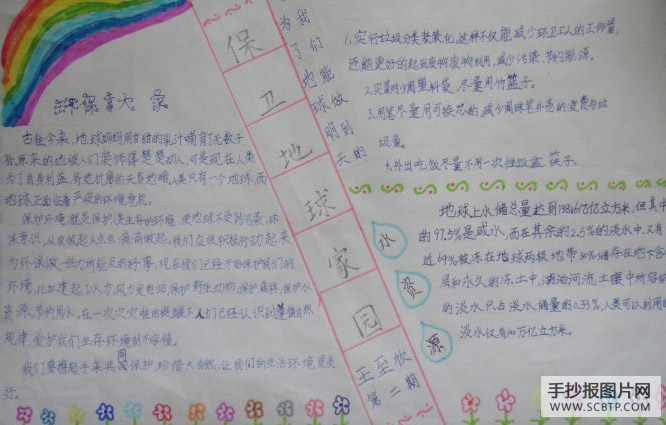 环保靠大家
古往今来,地球妈妈用甘甜的乳汁哺育了无数子
孙,原来的她被人们装饰得楚楚动人,可是现在人类
为了自身利益,将她折磨的天昏地暗,人类只有一个地球,而
地球正面临着严峻的环境危机。
保护环境就是保护人类生存的环境,使地球不受到污染,环
保意识,从我做起,从点点滴滴做起,我们应该积极行动起来
为环保做一些力所能及的好事,现在我们已经开始保护我们的
环境,比如建起了水力、风力发电站,保护野生动物,保护森林,保护水
资源,节约用水,在一次次灾难的提醒下,人们已经认识到遵循自然
规律,爱护我们生存环境刻不容缓。
我们要携起手来共同保护,珍惜大自然,让我们的生活环境更美
好。
保
卫
地
球
家
园
王至欣
第二期
为了地球明天的
我们能做到
1.实行垃圾分类装袋化,这样不仅能减少环卫工人的工作量,
还能更好的起到废物利用,减少污染,节约能源。
2.买菜时少用塑料袋,尽量用竹篮子。
3.用笔尽量用可换芯的,减少圆珠笔外壳的浪费与垃
圾量。
4.外出吃饭尽量不用一次性饭盒、筷子。
水
资
源
地球上水储总量达到138.6亿亿立方米,但其中
的97.5%是咸水,而在其余的2.5%的淡水中,又有
近69%被冻在地球两极地带,30%储存在地下含
层和永久的冻土中,湖泊河流,土壤中所容纳
的淡水只占淡水储量的0.33%,人类可以利用的
淡水仅有100万亿立方米。
手抄报图片网
WWW.SCBTP.COM